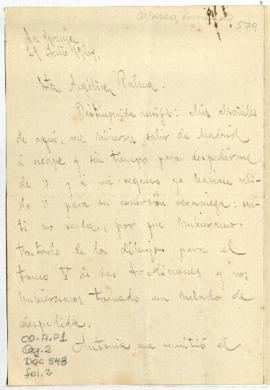 La Granja
29 Julio 1924.
Srta Angélica Palma
Distinguida amiga: Mis albañiles
de aquí, me hicieron salir de Madrid
á escape y sin tiempo para despedirme
de V. y á mi regreso ya habia
V. para su excursion veraniega:
ti no verla, por que hubieramos
tratado de los dibujos para el
tomo V de las Tradiciones y nos
hubieramos tomado un helado de
despedida.
Antonia me remitió el
CO-A.P1
Caj.2
DOC 548
fol.2